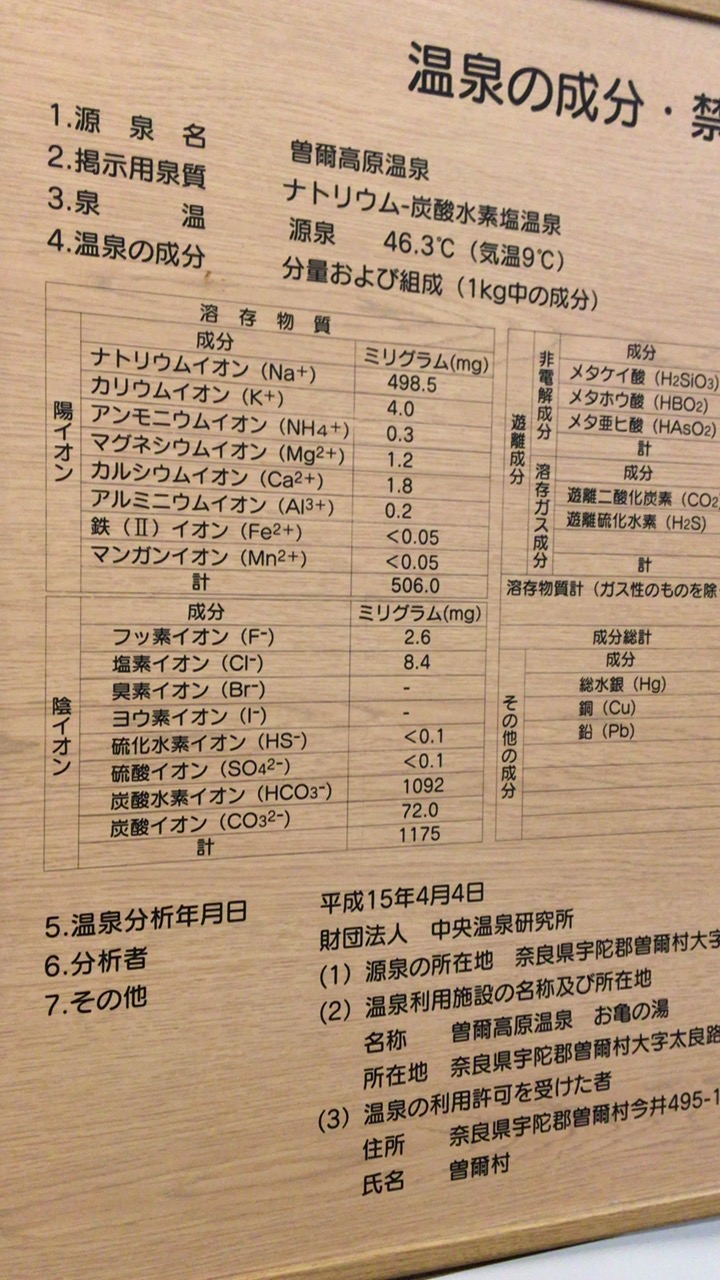 温泉の成分・禁
1.源泉名 曽爾高原温泉
2.掲示用泉質 ナトリウム-炭酸水素塩温泉
3.泉温 源泉 46.3℃（気温9℃）
4.温泉の成分 分量および組成（1kg中の成分）
溶存物質
陽イオン
成分 ミリグラム(mg)
ナトリウムイオン（Na+） 498.5
カリウムイオン（K+） 4.0
アンモニウムイオン（NH4+） 0.3
マグネシウムイオン（Mg2+） 1.2
カルシウムイオン（Ca2+） 1.8
アルミニウムイオン（Al3+） 0.2
鉄（Ⅱ）イオン（Fe2+） <0.05
マンガンイオン（Mn2+） <0.05
計 506.0
陰イオン
成分 ミリグラム(mg)
フッ素イオン（F-） 2.6
塩素イオン（Cl-） 8.4
臭素イオン（Br-） -
ヨウ素イオン（I-） -
硫化水素イオン（HS-） <0.1
硫酸イオン（SO42-） <0.1
炭酸水素イオン（HCO3-） 1092
炭酸イオン（CO32-） 72.0
計 1175
遊離成分
非電解成分
成分
メタケイ酸（H2SiO3）
メタホウ酸（HBO2）
メタ亜ヒ酸（HAsO2）
計
溶存ガス成分
成分
遊離二酸化炭素（CO2
遊離硫化水素（H2S）
計
溶存物質計（ガス性のものを除
成分総計
その他の成分
成分
総水銀（Hg）
銅（Cu）
鉛（Pb）
5.温泉分析年月日 平成15年4月4日
6.分析者 財団法人 中央温泉研究所
7.その他 （1）源泉の所在地 奈良県宇陀郡曽爾村大字
（2）温泉利用施設の名称及び所在地
名称 曽爾高原温泉 お亀の湯
所在地 奈良県宇陀郡曽爾村大字太良路
（3）温泉の利用許可を受けた者
住所 奈良県宇陀郡曽爾村今井495-1
氏名 曽爾村